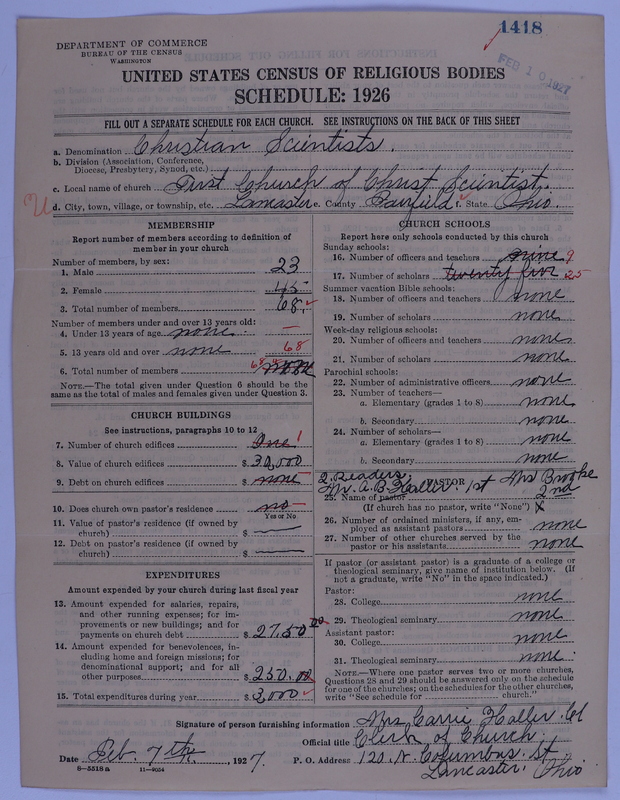 1418
FEB 10 1927
DEPARTMENT OF COMMERCE
BUREAU OF THE CENSUS
WASHINGTON
UNITED STATES CENSUS OF RELIGIOUS BODIES
SCHEDULE: 1926
FILL OUT A SEPARATE SCHEDULE FOR EACH CHURCH. SEE INSTRUCTIONS ON THE BACK OF THIS SHEET
a. Denomination Christian Scientists.
b. Division (Association, Conference,
Diocese, Presbytery, Synod, etc.)
c. Local name of church First Church of Christ Scientist.
U d. City, town, village, or township, etc. Lancaster e. County Fairfield f. State Ohio.
MEMBERSHIP
Report number of members according to definition of
member in your church
Number of members, by sex:
1. Male 23
2. Female 45
3. Total number of members 68.
Number of members under and over 13 years old:
4. Under 13 years of age none. —
5. 13 years old and over none 68
6. Total number of members 68 none
NOTE.—The total given under Question 6 should be the
same as the total of males and females given under Question 3.
CHURCH BUILDINGS
See instructions, paragraphs 10 to 12
7. Number of church edifices One 1
8. Value of church edifices $ 30,000
9. Debt on church edifices $ none —
10. Does church own pastor's residence no
Yes or No
11. Value of pastor's residence (if owned by
church) $ —
12. Debt on pastor's residence (if owned by
church) $ —
EXPENDITURES
Amount expended by your church during last fiscal year
13. Amount expended for salaries, repairs,
and other running expenses; for im-
provements or new buildings; and for
payments on church debt $ 27.50 00
14. Amount expended for benevolences, in-
cluding home and foreign missions; for
denominational support; and for all
other purposes $ 250.00
15. Total expenditures during year $ 3,000
CHURCH SCHOOLS
Report here only schools conducted by this church
Sunday schools:
16. Number of officers and teachers nine 9
17. Number of scholars twenty five 25
Summer vacation Bible schools:
18. Number of officers and teachers none
19. Number of scholars none
Week-day religious schools:
20. Number of officers and teachers none
21. Number of scholars none
Parochial schools:
22. Number of administrative officers none
23. Number of teachers—
a. Elementary (grades 1 to 8) none
b. Secondary none
24. Number of scholars—
a. Elementary (grades 1 to 8) none
b. Secondary none
2 Readers, PASTOR Mrs Brooke
Mr. A. B. Haller. 1st 2nd
25. Name of pastor
(If church has no pastor, write "None") X
26. Number of ordained ministers, if any, em-
ployed as assistant pastors none
27. Number of other churches served by the
pastor or his assistants none
If pastor (or assistant pastor) is a graduate of a college or
theological seminary, give name of institution below. (If
not a graduate, write "No" in the space indicated.)
Pastor:
28. College none
29. Theological seminary none
Assistant pastor:
30. College none
31. Theological seminary none.
NOTE.—Where one pastor serves two or more churches,
Questions 28 and 29 should be answered only on the schedule
for one of the churches; on the schedules for the other churches,
write "See schedule for church."
Signature of person furnishing information Mrs Carrie Haller. Cl
Official title Clerk of Church.
Date Feb. 7th, 1927. P. O. Address 120. N. Columbus. St.
Lancaster. Ohio
8—5518 a 11—9054